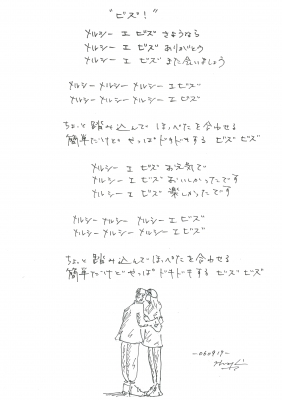 "ビズ！"
メルシー エ ビズ さようなら
メルシー エ ビズ ありがとう
メルシー エ ビズ また会いましょう
メルシー メルシー メルシー エ ビズ
メルシー メルシー メルシー エ ビズ
ちょっと踏み込んで ほっぺたを合わせる
簡単だけど やっぱ ドキドキする ビズ ビズ
メルシー エ ビズ お元気で
メルシー エ ビズ おいしかったです
メルシー エ ビズ 楽しかったです
メルシー メルシー メルシー エ ビズ
メルシー メルシー メルシー エ ビズ
ちょっと踏み込んで ほっぺたを合わせる
簡単だけど やっぱ ドキドキする ビズ ビズ
-060919-